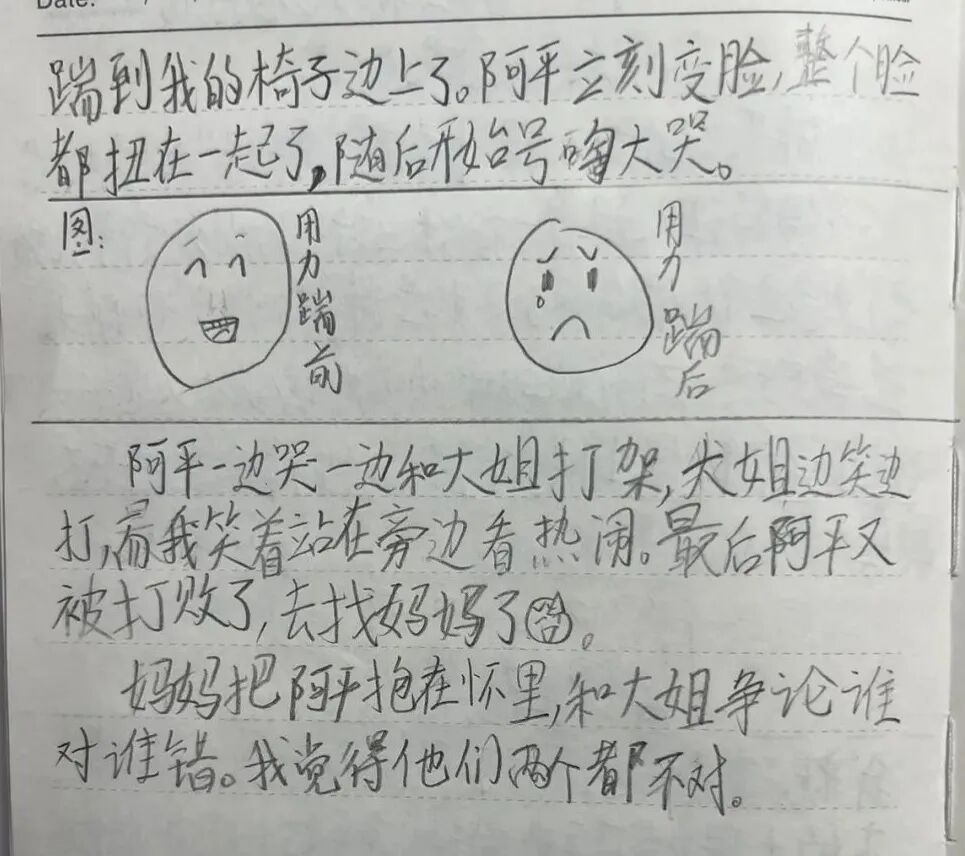 Date:
踹到我的椅子边上了。阿平立刻变脸,整个脸
都扭在一起了,随后开始号啕大哭。
图:
用力踹前
用力踹后
阿平一边哭一边和大姐打架,大姐边笑边
打,而我笑着站在旁边看热闹。最后阿平又
被打败了,去找妈妈了。
妈妈把阿平抱在怀里,和大姐争论谁
对谁错。我觉得他们两个都不对。